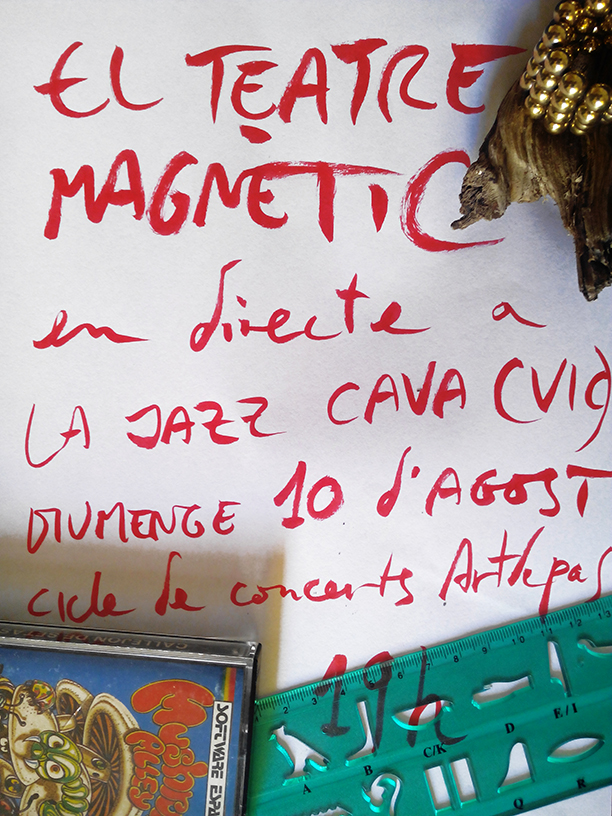 EL TEATRE
MAGNÈTIC
en directe a
LA JAZZ CAVA (VIC)
DIUMENGE 10 d'AGOST
cicle de concerts Artdepas
19h
CALLEJON
SOFTWARE
1 2 3 4 5 6 7 8 9 10 11 12 13
A B C/K D E/I
Q R